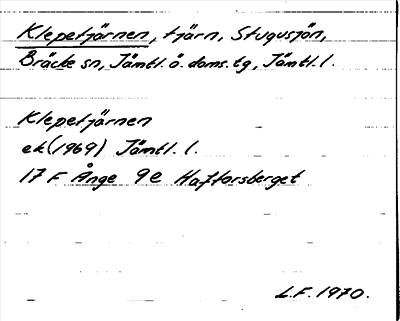 Klepetjärnen, tjärn, Stugusjön,
Bräcke sn, Jämtl. ö. doms. tg, Jämtl. l.
Klepetjärnen
ek (1969) Jämtl. l.
17 F Ånge 9e Haftorsberget
L.F. 1970.